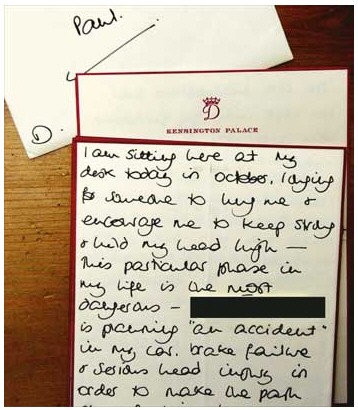 Paul.
D.
D
KENSINGTON PALACE
I am sitting here at my
desk today in october, longing
for someone to hug me &
encourage me to keep strong
& hold my head high —
This particular phase in
my life is the most
dangerous —
is planning "an accident"
in my car, brake failure
& serious head injury in
order to make the path